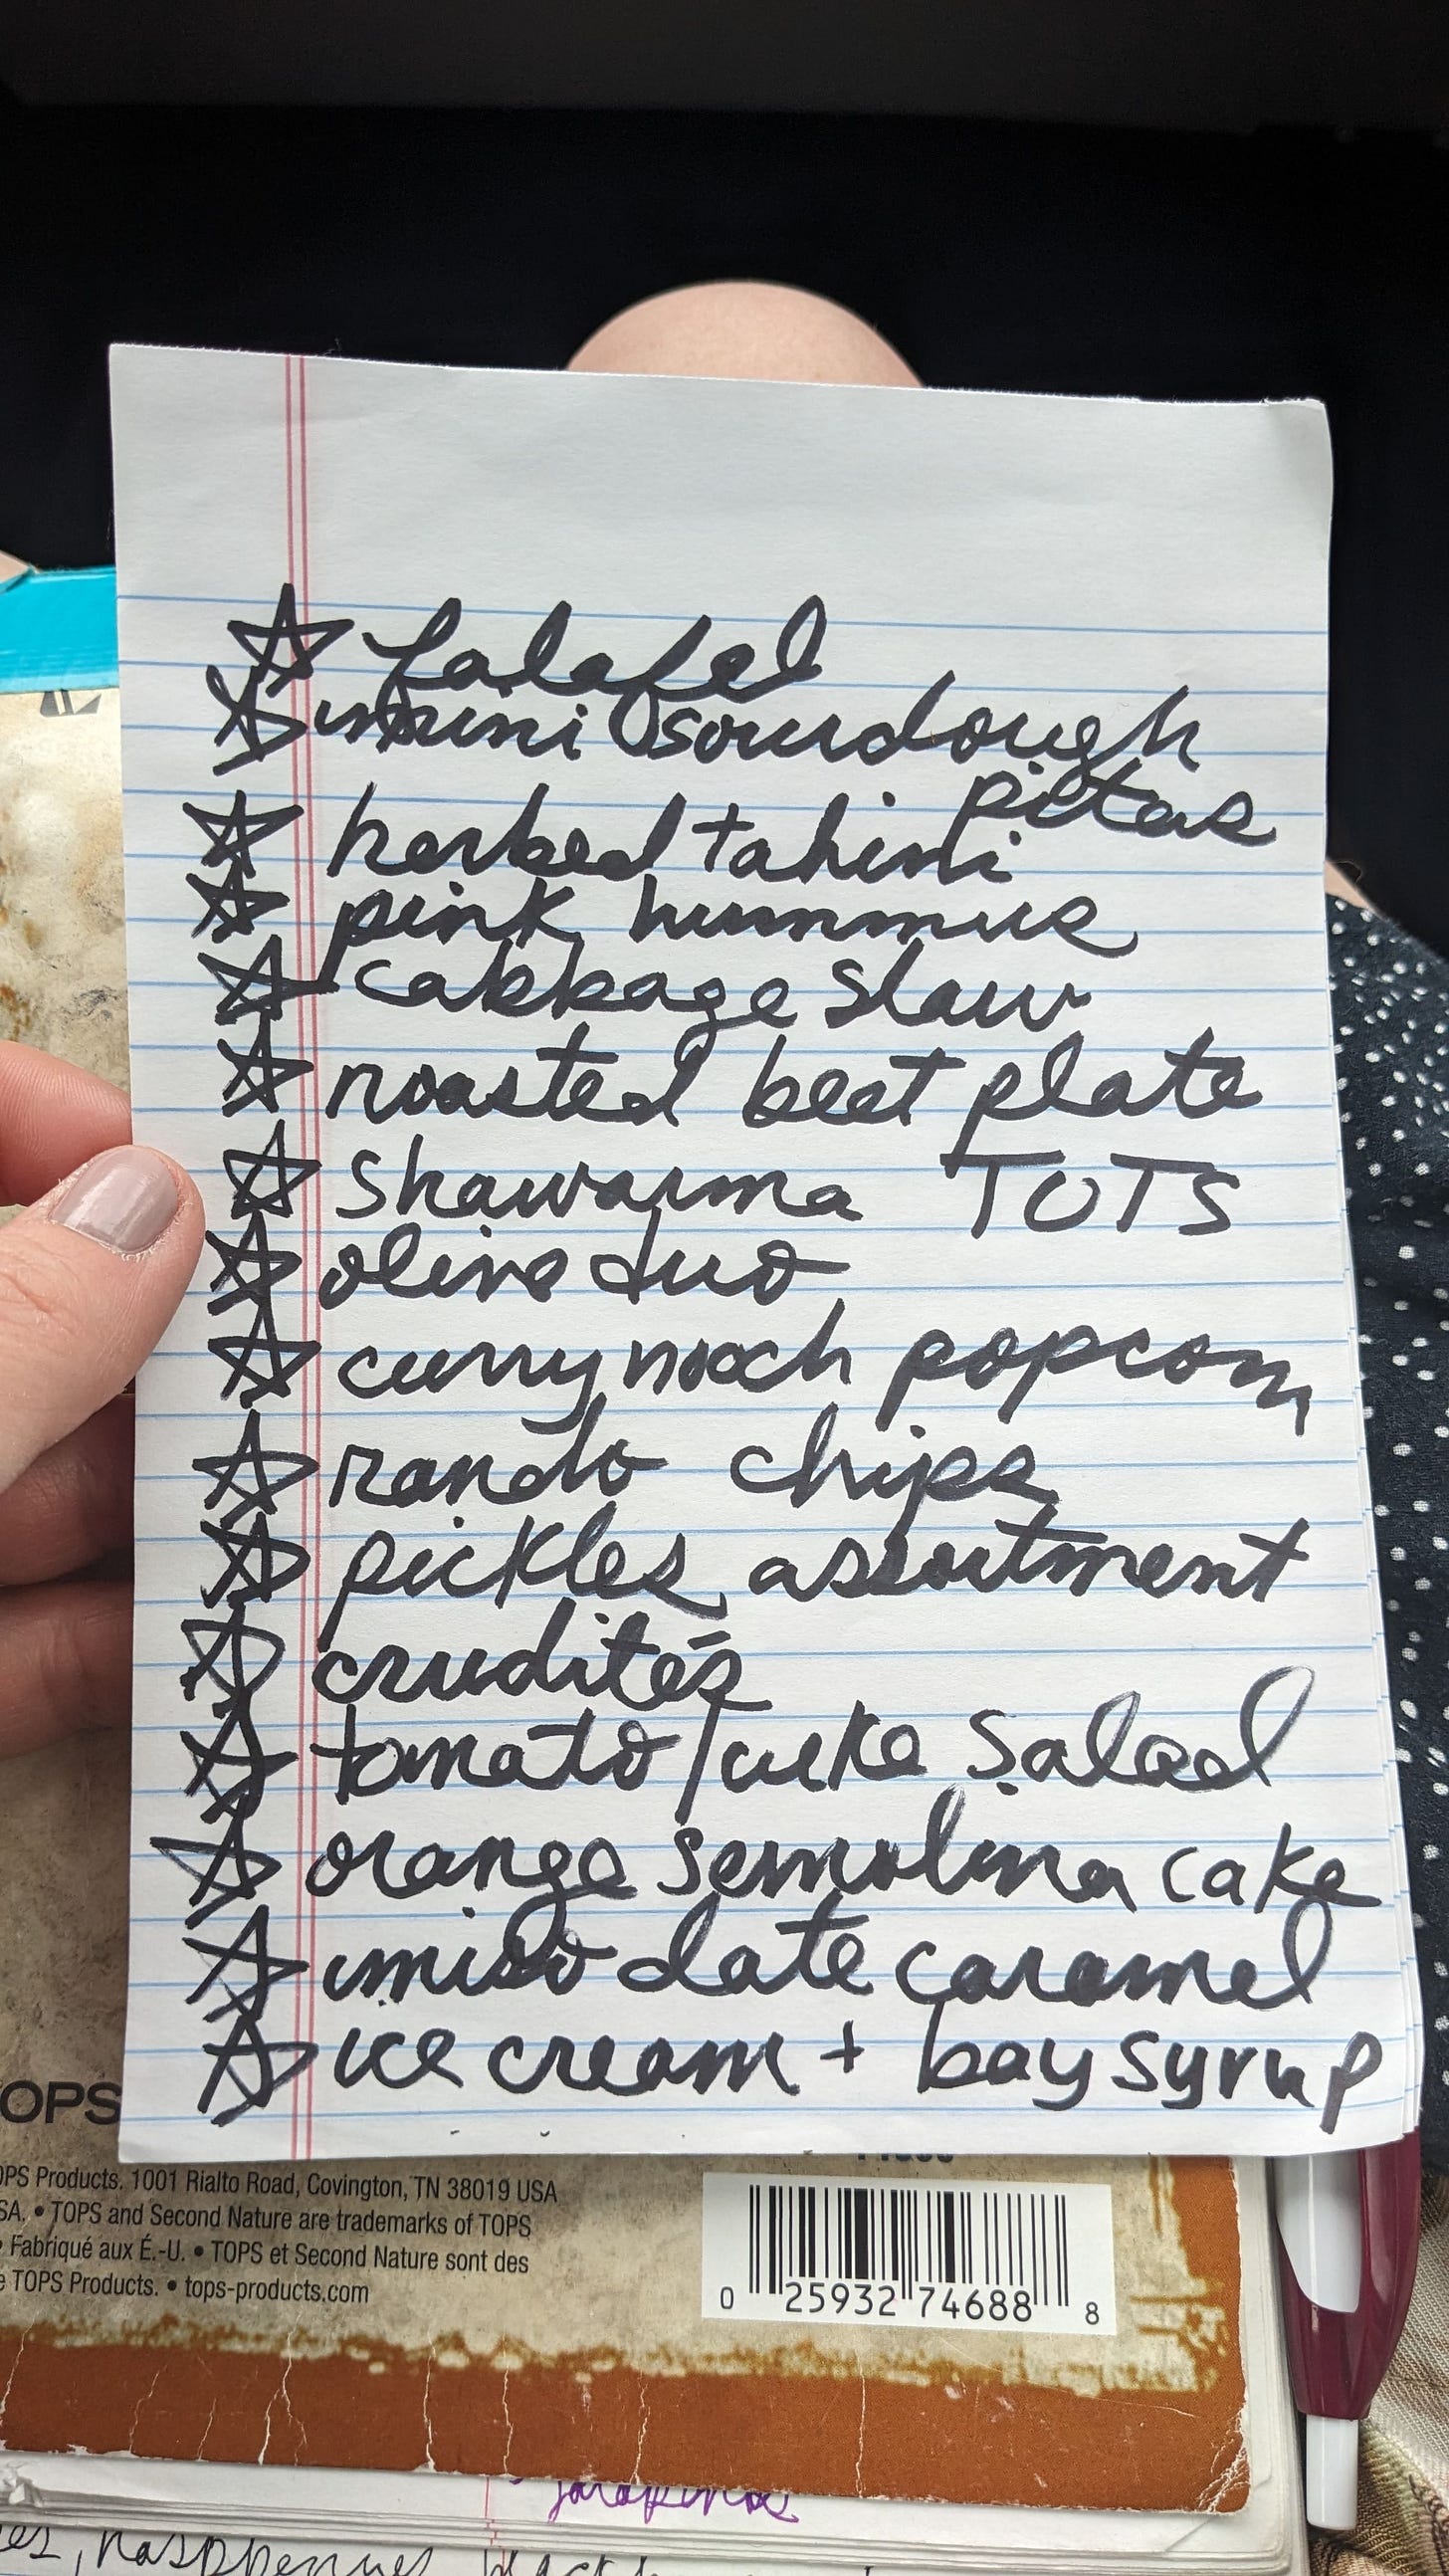 ☆ falafel
☆ mini sourdough
pitas
☆ herbed tahini
☆ pink hummus
☆ cabbage slaw
☆ roasted beet plate
☆ shawarma TOTS
☆ olive duo
☆ curry nooch popcorn
☆ rando chips
☆ pickles assortment
☆ crudités
☆ tomato/cuke salad
☆ orange semolina cake
☆ miso date caramel
☆ ice cream + bay syrup
OPS
OPS Products. 1001 Rialto Road, Covington, TN 38019 USA
SA. • TOPS and Second Nature are trademarks of TOPS
Fabriqué aux É.-U. • TOPS et Second Nature sont des
e TOPS Products. • tops-products.com
0 25932 74688 8